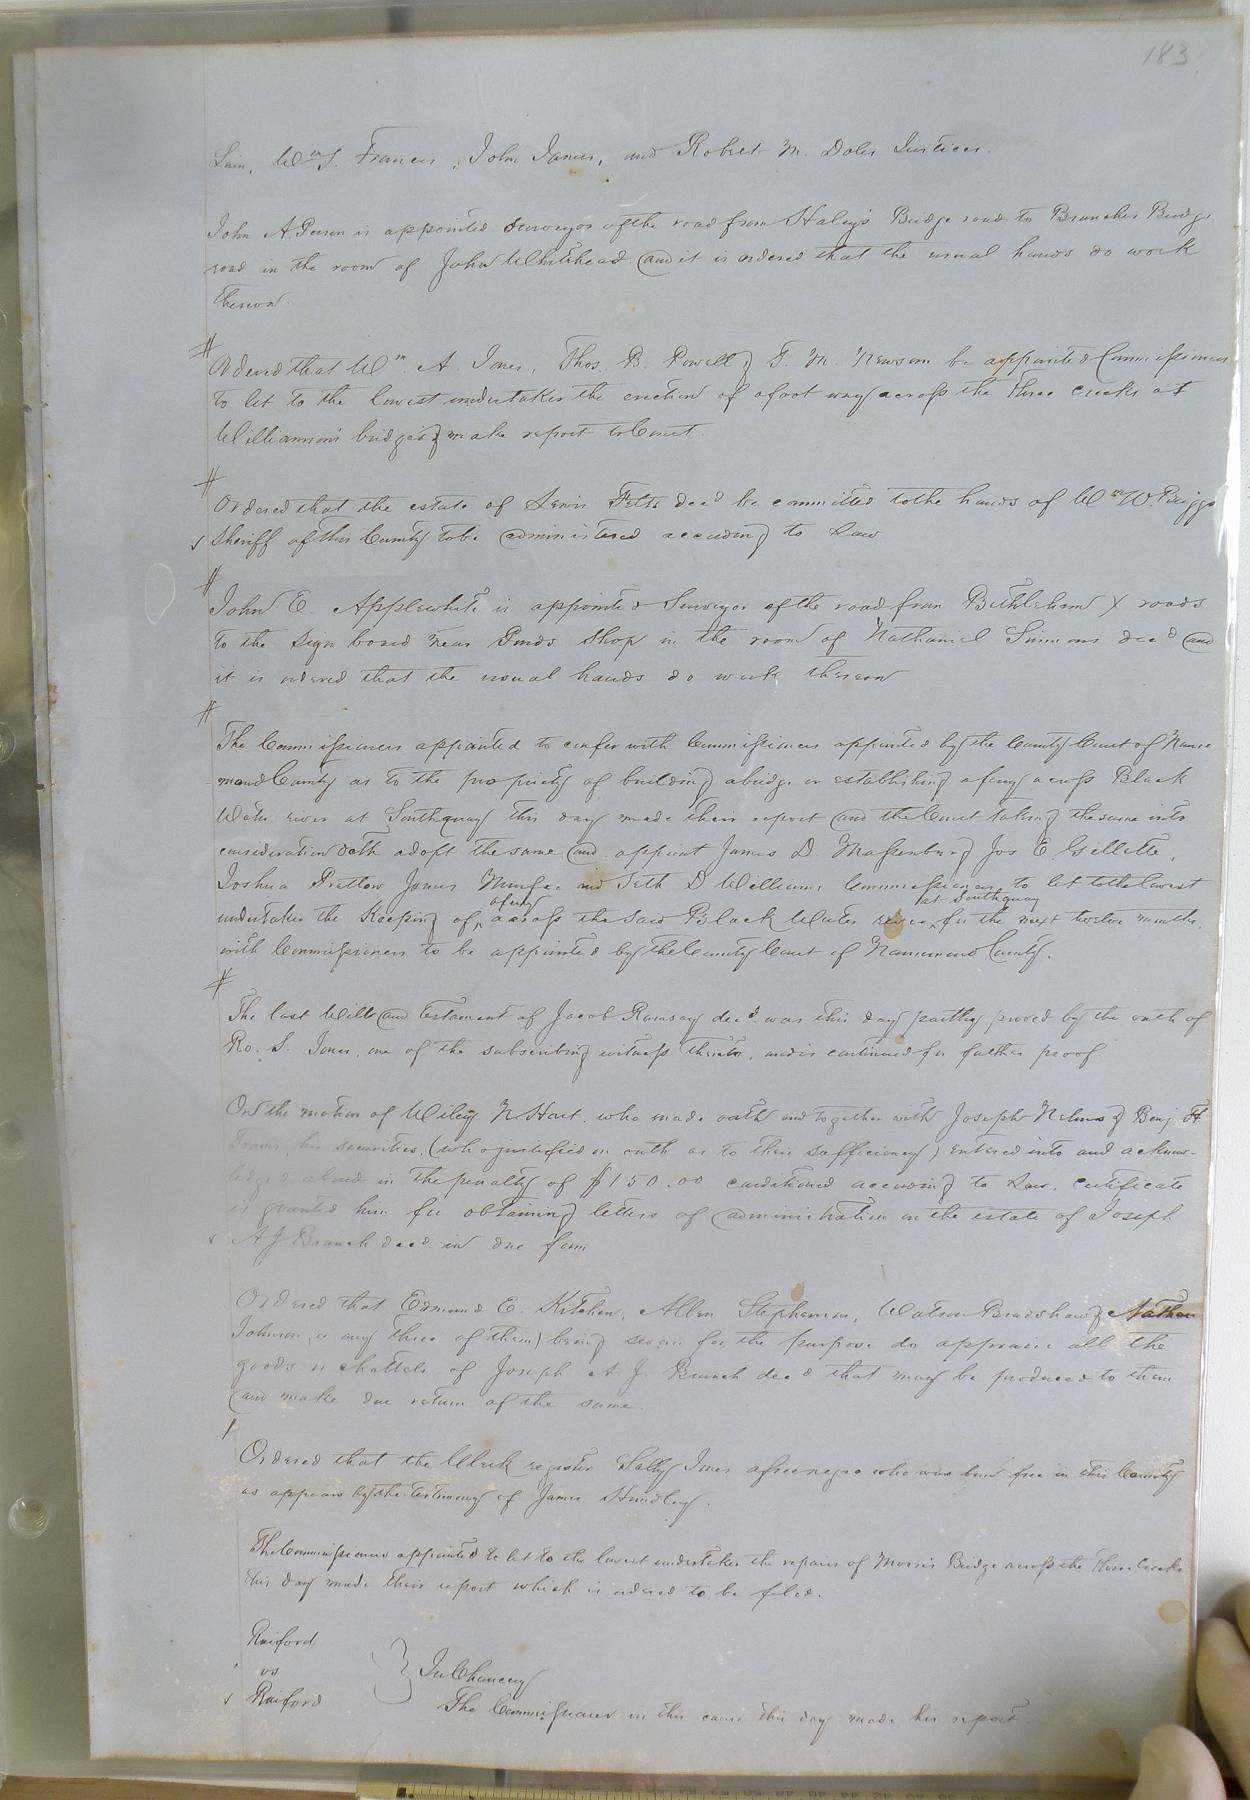 183
Lain, Wm S. Francis, John James, and Robert M. Doles Justices.
John A Person is appointed surveyor of the road from Haley's Bridge road to Branches Bridge
road in the room of John Whitehead and it is ordered that the usual hands do work
thereon.
Ordered that Wm A. Jones, Thos. B. Powell & T. M. Newsom be appointed Commissioners
to let to the lowest undertaker the erection of a foot way across the three creeks at
Williamson's bridge & make report to Court.
Ordered that the estate of Lewis Felts decd be committed to the hands of Wm W. Briggs
Sheriff of this County to be administered according to Law
John E. Applewhite is appointed Surveyor of the road from Bethlehem X roads
to the sign board near Ponds Shop in the room of Nathaniel Simmons decd and
it is ordered that the usual hands do work thereon
The Commissioners appointed to confer with Commissioners appointed by the County Court of Nanse
mond County as to the propriety of building a bridge or establishing a ferry across Black
Water river at Southquay this day made their report and the Court taking the same into
consideration doth adopt the same and appoint James D. Massenburg Jos E Gillette,
Joshua Pretlow James Murfee and Seth D Williams Commissioners to let to the lowest
undertaker the Keeping of a ferry across the said Black Water river at Southquay for the next twelve months,
with Commissioners to be appointed by the County Court of Nansemond County.
The last Will and testament of Jacob Ramsay decd was this day partly proved by the oath of
Ro. S. Jones, one of the subscribing witness thereto, and is continued for further proof.
On the motion of Wiley N Hart, who made oath and together with Joseph Nelms & Benj. H
Travis his securities, (who justified on oath as to their sufficiency) entered into and acknow-
ledged a bond in the penalty of $150.00 conditioned according to Law, certificate
is granted him for obtaining letters of administration on the estate of Joseph
A J Branch decd in due form
Ordered that Edmund E. Kitchen, Allen Stephenson, Watson Bradshaw & Nathan
Johnson, or any three of them) being sworn for the purpose do appraise all the
goods or chattels of Joseph A J. Branch decd that may be produced to them
and make due return of the same.
Ordered that the Clerk register Sally Jones a free negro who was born free in this County
as appears by the testimony of James Hundley.
The Commissioners appointed to let to the lowest undertaker the repairs of Morris Bridge across the three Creeks
this day made their report which is ordered to be filed.
Raiford
vs
Raiford
In Chancery
The Commissioner in this cause this day made his report